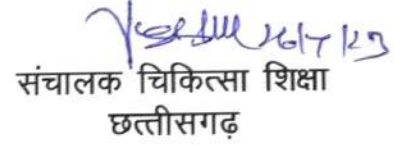 26/7/23
संचालक चिकित्सा शिक्षा
छत्तीसगढ़